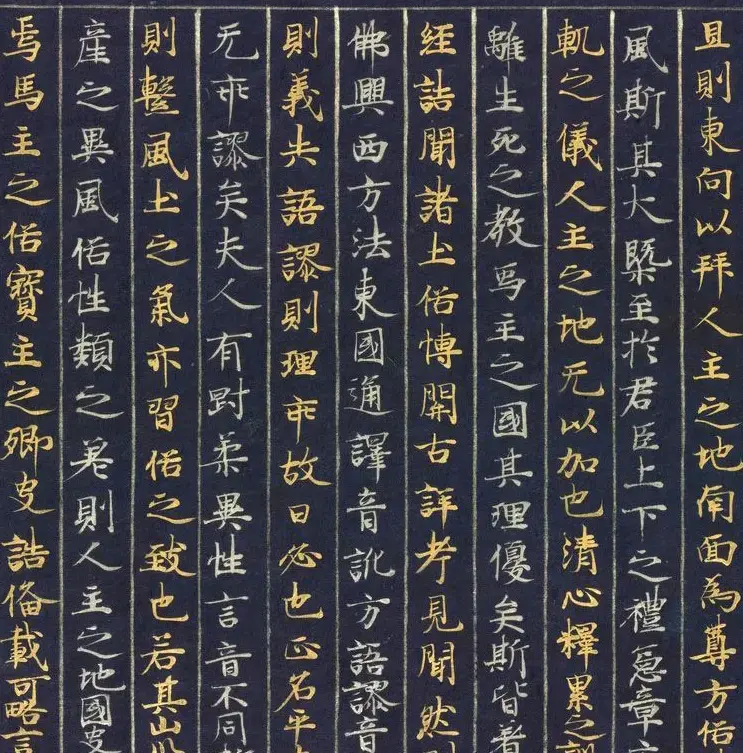 且則東向以拜人主之地南面為尊方俗
風斯其大槩至於君臣上下之禮憲章
軌之儀人主之地无以加也清心釋累之
離生死之教焉主之國其理優矣斯皆著
經誥聞諸土俗博開古詳考見聞然則
佛興西方法東國通譯音訛方語謬音
則義失語謬則理乖故曰必也正名乎
无乖謬矣夫人有對柔異性言音不同
則繫風土之氣亦習俗之致也若其山川
產之異風俗性類之差則人主之地國史
焉馬主之俗寶主之鄉史誥備載可略言